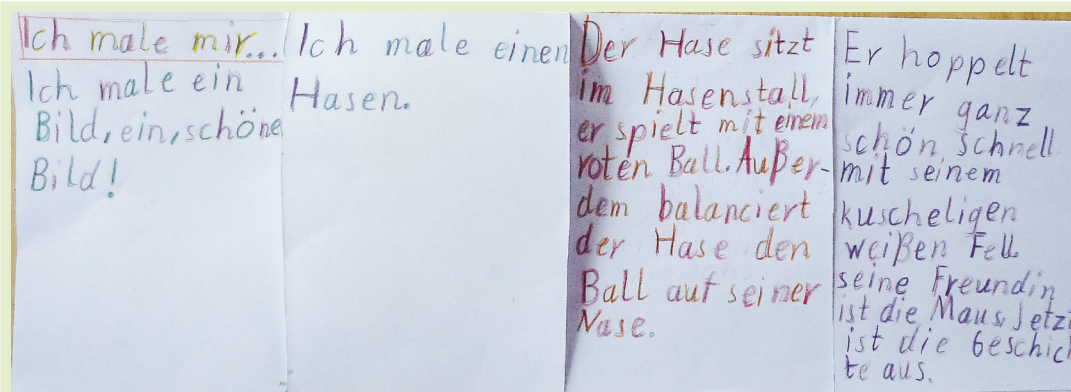 Ich male mir...
Ich male ein
Bild, ein, schöne
Bild!
Ich male einen
Hasen.
Der Hase sitzt
im Hasenstall,
er spielt mit einem
roten Ball. Außer-
dem balanciert
der Hase den
Ball auf seiner
Nase.
Er hoppelt
immer ganz
schön schnell
mit seinem
kuscheligen
weißen Fell.
seine Freundin
ist die Maus. Jetzt
ist die Geschich
te aus.